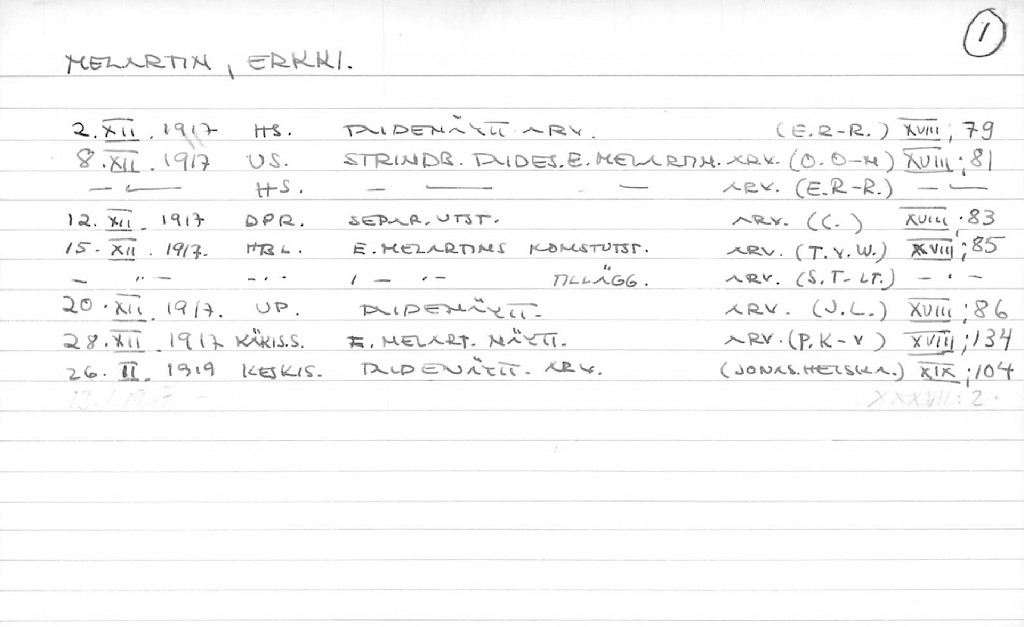 1
MELARTIN, ERKKI.
2. XII. 1917 HS. TAIDENÄYTT. ARV. (E.R-R.) XVIII; 79
8. XII. 1917 US. STRINDB. TAIDES. E. MELARTIN. ARV. (O. O-N) XVIII; 81
— " — HS. — — — ARV. (E.R-R.) — " —
12. XII. 1917 DPR. SEPAR. UTST. ARV. (C.) XVIII. 83
15. XII. 1917. HBL. E. MELARTINS KONSTUTST. ARV. (T.v.W.) XVIII; 85
— " — - " - " — " — TILLÄGG. ARV. (S.T-LT.) — " —
20. XII. 1917. UP. TAIDENÄYTT. ARV. (J.L.) XVIII; 86
28. XII 1917 KÄKIS.S. E. MELART. NÄYTT. ARV. (P.K-V) XVIII; 134
26. II. 1919 KESKIS. TAIDENÄYTT. ARV. (JONAS.HEISKA.) XIX; 104
XXXVII: 2.